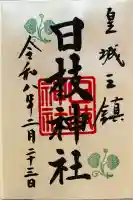 皇城之鎮
日枝神社
令和八年二月二十三日